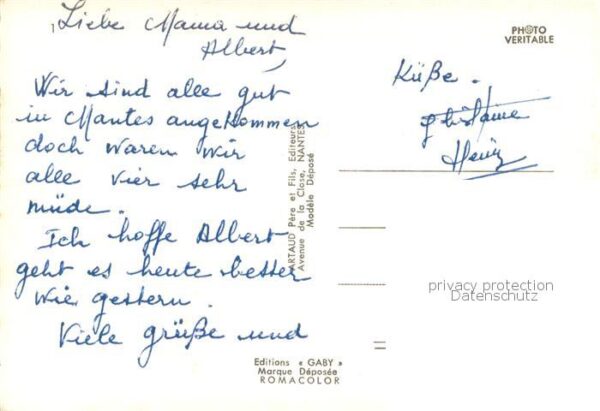 Liebe Mama und
Albert,
Wir sind alle gut
in Nantes angekommen
doch waren wir
alle vier sehr
müde.
Ich hoffe Albert
geht es heute better
wie gestern.
Viele grüße und
Küße.
Ghislaine
Heinz
PHOTO
VERITABLE
ARTAUD Père et Fils, Editeurs
Avenue de la Close, NANTES
Modèle Déposé
privacy protection
Datenschutz
Editions « GABY »
Marque Déposée
ROMACOLOR